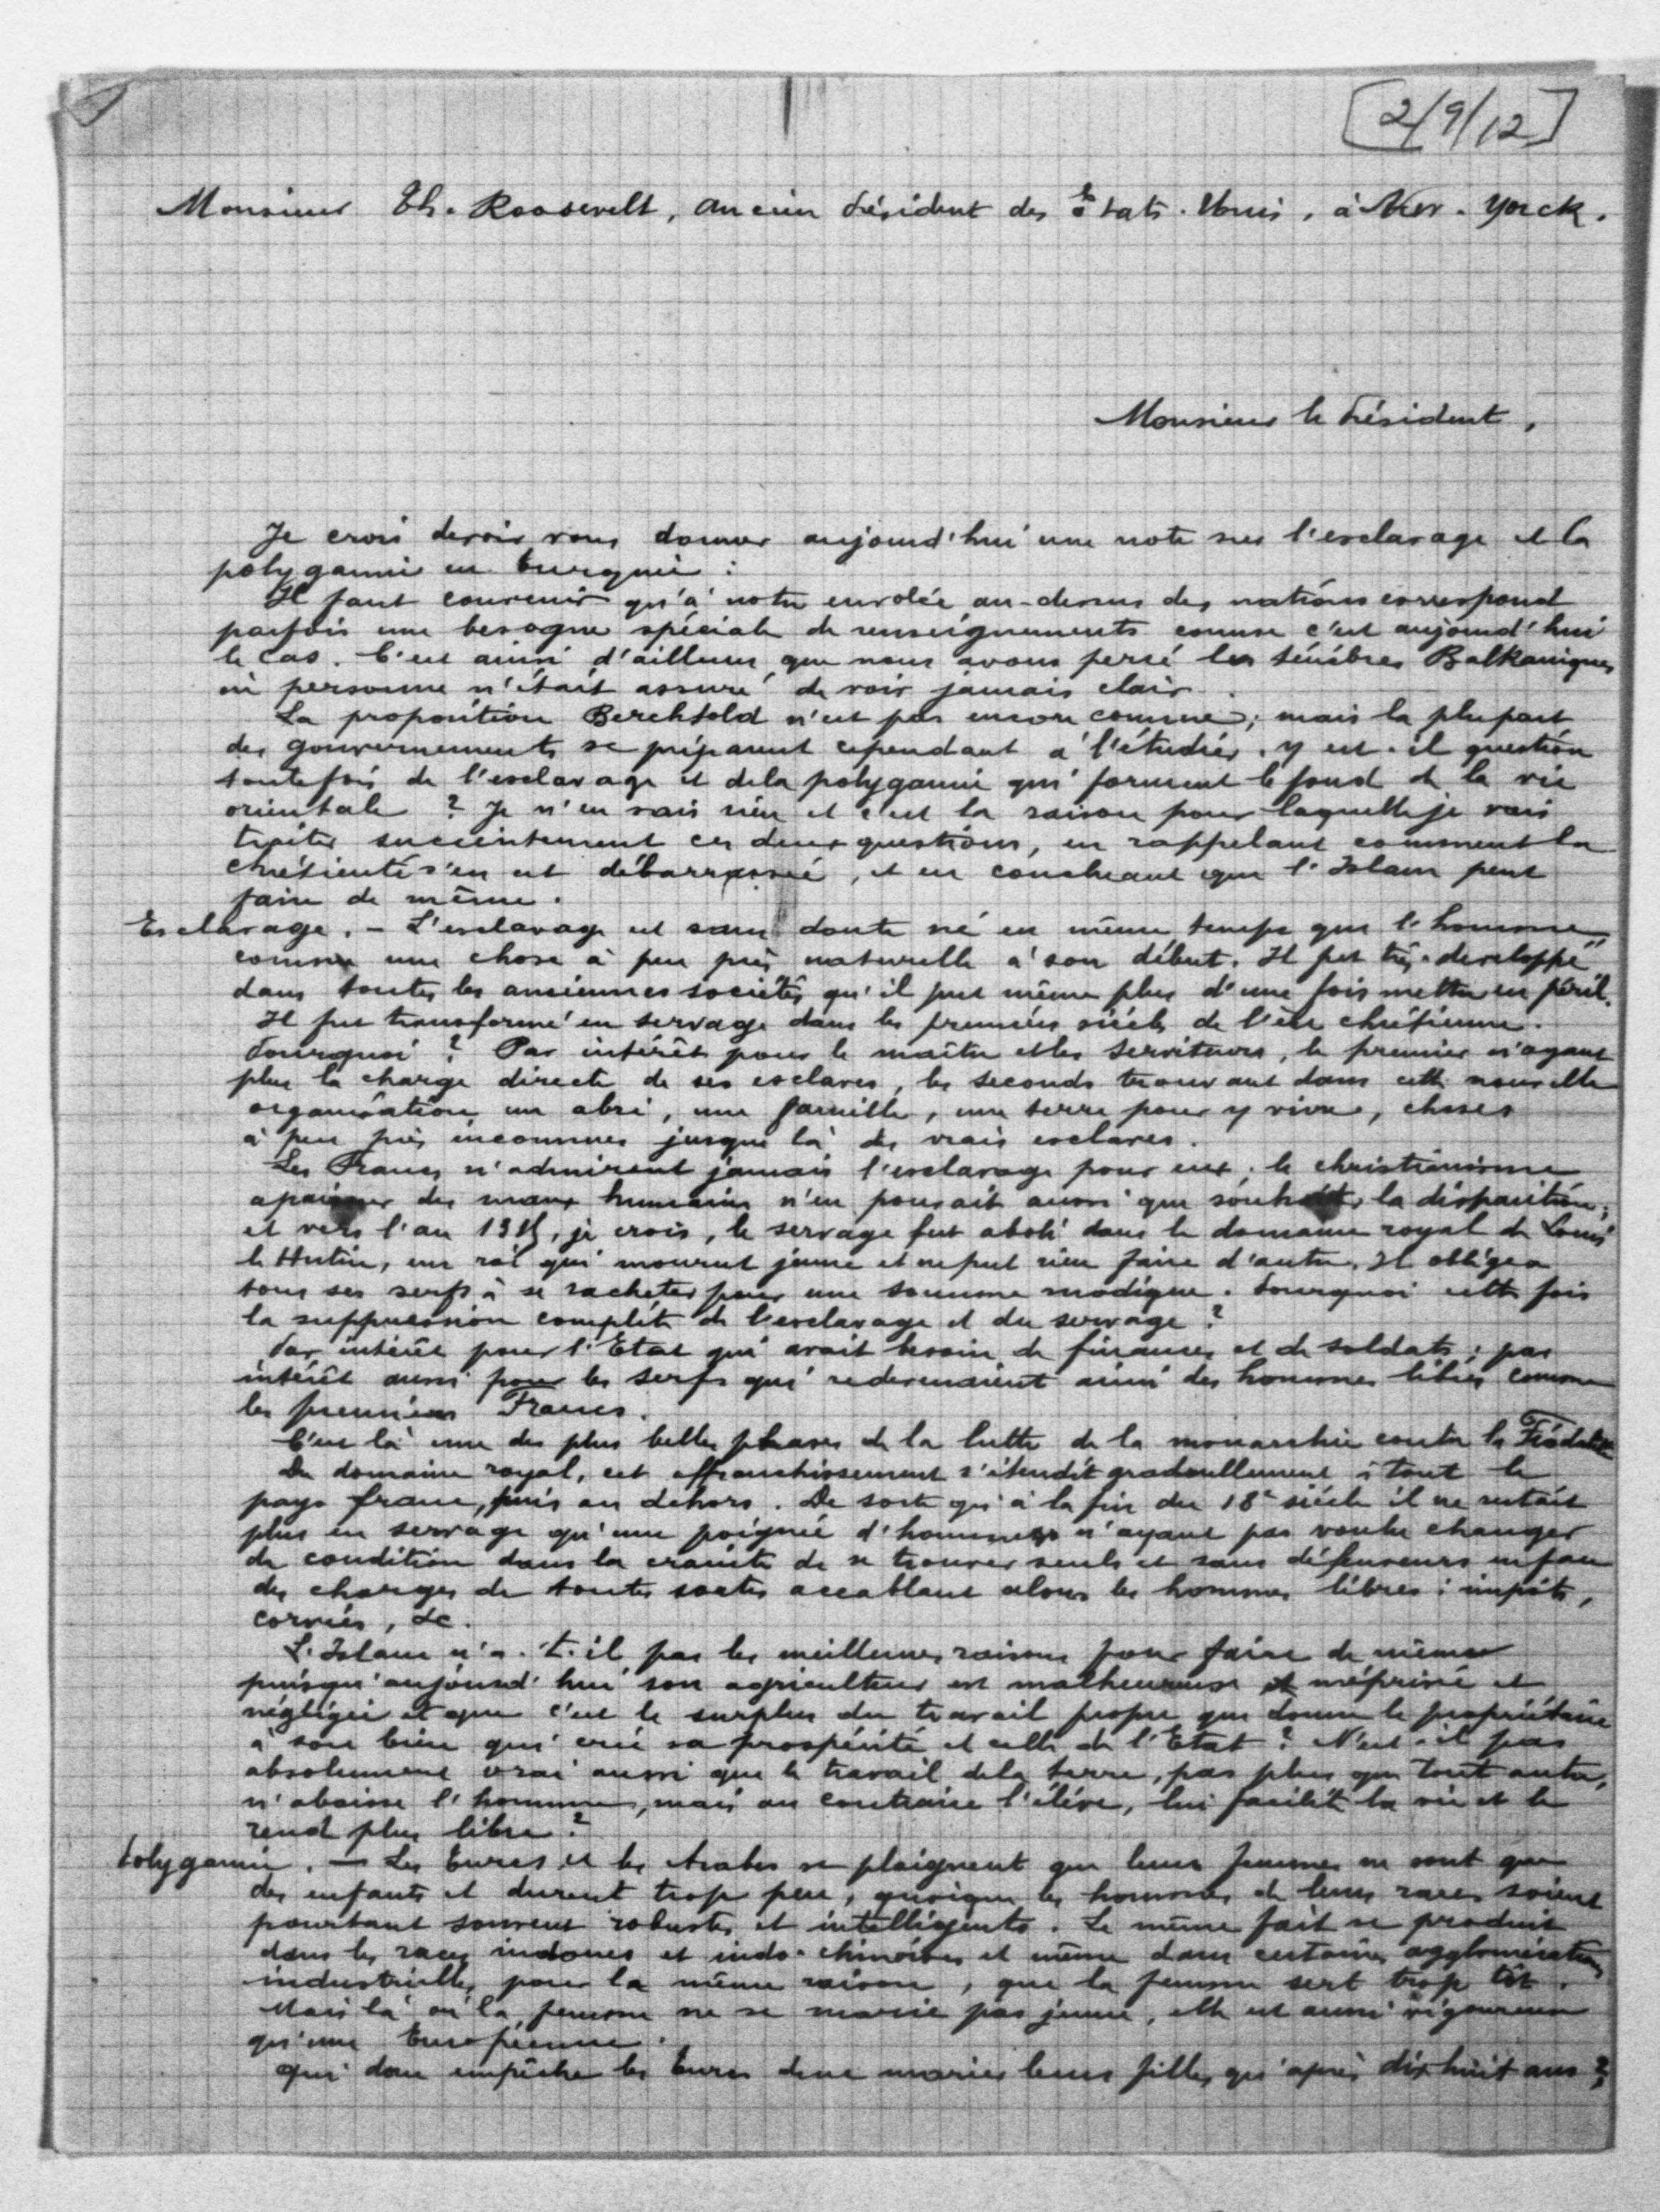 [2/9/12]
Monsieur Th. Roosevelt, ancien Président des États-Unis, à New-Yorck.
Monsieur le Président,
Je crois devoir vous donner aujourd'hui une note sur l'esclavage et la
polygamie en Turquie :
Il faut convenir qu'à notre envolée au-dessus des nations correspond
parfois une besogne spéciale de renseignements comme c'est aujourd'hui
le cas. C'est ainsi d'ailleurs que nous avons percé les ténèbres Balkaniques
où personne n'était assuré de voir jamais clair.
La proposition Berchtold n'est pas encore connue; mais la plupart
des gouvernements se préparent cependant à l'étudier. Y est-il question
toutefois de l'esclavage et de la polygamie qui forment le fond de la vie
orientale ? Je n'en sais rien et c'est la raison pour laquelle je vais
traiter succintement ces deux questions, en rappelant comment la
chrétienté s'en est débarrassée, et en concluant que l'Islam peut
faire de même.
Esclavage. - L'esclavage est sans doute né en même temps que l'homme,
comme une chose à peu près naturelle à son début. Il fut très-développé
dans toutes les anciennes sociétés qu'il put même plus d'une fois mettre en péril.
Il fut transformé en servage dans les premiers siècles de l'ère chrétienne.
Pourquoi ? Par intérêt pour le maître et les serviteurs, le premier n'ayant
plus la charge directe de ses esclaves, les seconds trouvant dans cette nouvelle
organisation un abri, une famille, une terre pour y vivre, choses
à peu près inconnues jusque là des vrais esclaves.
Les Francs n'admirent jamais l'esclavage pour eux; le christianisme
apaiseur des maux humains n'en pouvait aussi que souhaiter la disparition;
et vers l'an 1315, je crois, le servage fut aboli dans le domaine royal de Louis
le Hutin, un roi qui mourut jeune et ne put rien faire d'autre. Il obligea
tous ses serfs à se racheter pour une somme modique. Pourquoi cette fois
la suppression complète de l'esclavage et du servage ?
Par intérêt pour l'Etat qui avait besoin de finances et de soldats; par
intérêt aussi pour les serfs qui redevenaient ainsi des hommes libres comme
les premiers Francs.
C'est là une des plus belles phases de la lutte de la monarchie contre la Féodalité
Du domaine royal, cet affranchissement s'étendit graduellement à tout le
pays franc, puis au dehors. De sorte qu'à la fin du 18e siècle il ne restait
plus en servage qu'une poignée d'hommes n'ayant pas voulu changer
de condition dans la crainte de se trouver seuls et sans défenseurs en face
des charges de toutes sortes accablant alors les hommes libres : impôts,
corvées, &c.
L'Islam n'a-t-il pas les meilleures raisons pour faire de même
puisqu'aujourd'hui son agriculteur est malheureux et méprisé et
négligé et que c'est le surplus du travail propre que donne le propriétaire
à son bien qui crée sa prospérité et celle de l'Etat ? N'est-il pas
absolument vrai aussi que le travail de la terre, pas plus que tout autre,
n'abaisse l'homme, mais au contraire l'élève, lui facilite la vie et le
rend plus libre ?
Polygamie. - Les Turcs et les Arabes se plaignent que leurs femmes ne sont que
des enfants et durent trop peu, quoique les hommes de leurs races soient
pourtant souvent robustes et intelligents. Le même fait se produit
dans les races indoues et indo-chinoises et même dans certaines agglomérations
industrielles, pour la même raison, que la femme sert trop tôt.
Mais là où la femme ne se marie pas jeune, elle est aussi vigoureuse
qu'une Européenne.
Qui donc empêche les Turcs de ne marier leurs filles qu'après dix huit ans ?